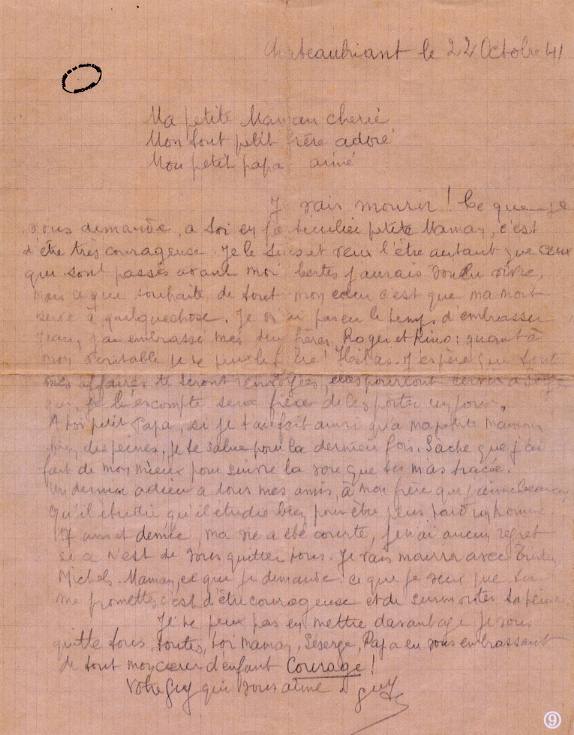 Châteaubriant le 22 Octobre 41
Ma petite Maman cherie
Mon tout petit frère adoré
Mon petit papa aimé
Je vais mourir ! Ce que je
vous demande, a toi en particulier petite Maman, c'est
d'être très courageuse. Je le suis et veux l'être autant que ceux
qui sont passés avant moi. Certes j'aurais voulu vivre,
mais ce que souhaite de tout mon cœur c'est que ma mort
serve à quelque chose. Je n'ai pas eu le temps d'embrasser
Jean, j'ai embrassé mes deux frères, Roger et Rino; quant à
mon véritable je ne peux le faire! Hélas. J'espère que tout
mes affaires te seront renvoyées, elles pourront servir à Serge
qui, je l'escompte sera fier de les porter un jour.
A toi petit Papa, si je t'ai fait ainsi qu'a ma petite Maman
bien des peines, je te salue pour la dernière fois. Sache que j'ai
fait de mon mieux pour suivre la voie que tu m'as tracée.
Un dernier adieu a tous mes amis, à mon frère que j'aime beaucoup
qu'il étudie qu'il étudie bien pour être plus tard un homme
17 ans et demi, ma vie a été courte, je n'ai aucun regret
si ce n'est de vous quitter tous. Je vais mourir avec Tintin,
Michels. Maman, ce que je demande ce que je veux que tu
me promettes, c'est d'être courageuse et de surmonter ta peine
Je ne peux pas en mettre davantage je vous
quitte tous, toutes, toi maman, Serge, Papa en vous embrassant
de tout mon cœur d'enfant Courage !
Votre Guy qui vous aime
Guy
9